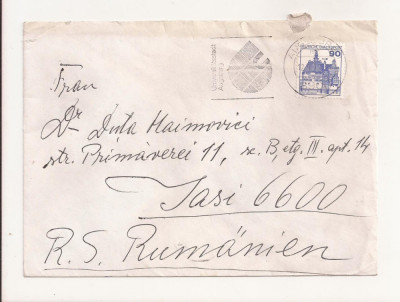 DEUTSCHE BUNDESPOST
90
Frau
Dr Duta Haimovici
str. Primăverei 11, sc. B, etg. III. apt. 14
Iasi 6600
R. S. Rumänien